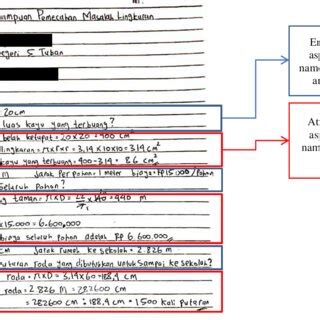 mampuan Pemecahan Masalah Lingkaran
egeri 5 Tuban
20 cm
luas kayu yang terbuang?
belah ketupat = 20 x 20 = 400 cm²
lingkaran = π x r x r = 3,14 x 10 x 10 = 314 cm²
kayu yang terbuang = 400 - 314 = 86 cm²
m Jarak Per pohon = 1 meter biaya = Rp 15.000 / Pohon
Seluruh Pohon?
g taman = π x D = 22/7 x 140 = 440 m
x 15.000 = 6.600.000
biaya seluruh pohon adalah Rp 6.600.000
cm Jarak rumah ke sekolah = 2.826 m
putaran roda yang dibutuhkan untuk sampai ke sekolah?
roda = π x D = 3,14 x 60 = 188,4 cm
roda = 2826 m = 282600 cm
= 282600 cm : 188,4 cm = 1500 kali putaran
En
asp
name
an
At
asp
name